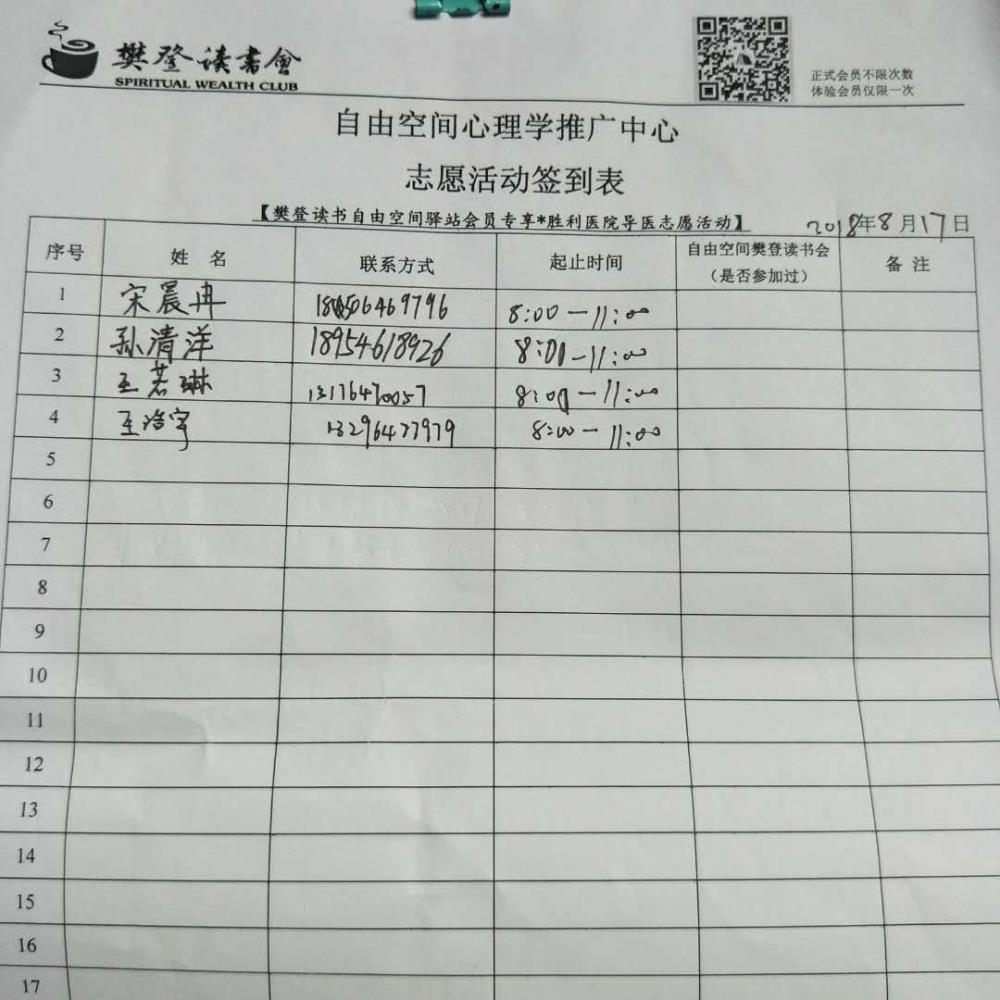 樊登读书会
SPIRITUAL WEALTH CLUB
正式会员不限次数
体验会员仅限一次
自由空间心理学推广中心
志愿活动签到表
【樊登读书自由空间驿站会员专享*胜利医院导医志愿活动】 2018年8月17日
序号 姓 名 联系方式 起止时间 自由空间樊登读书会（是否参加过） 备 注
1 宋晨冉 8:00-11:00
2 孙清洋 18954618926 8:00-11:00
3 王若琳 13176470057 8:00-11:00
4 王浩宇 13296477979 8:00-11:00
5
6
7
8
9
10
11
12
13
14
15
16
17